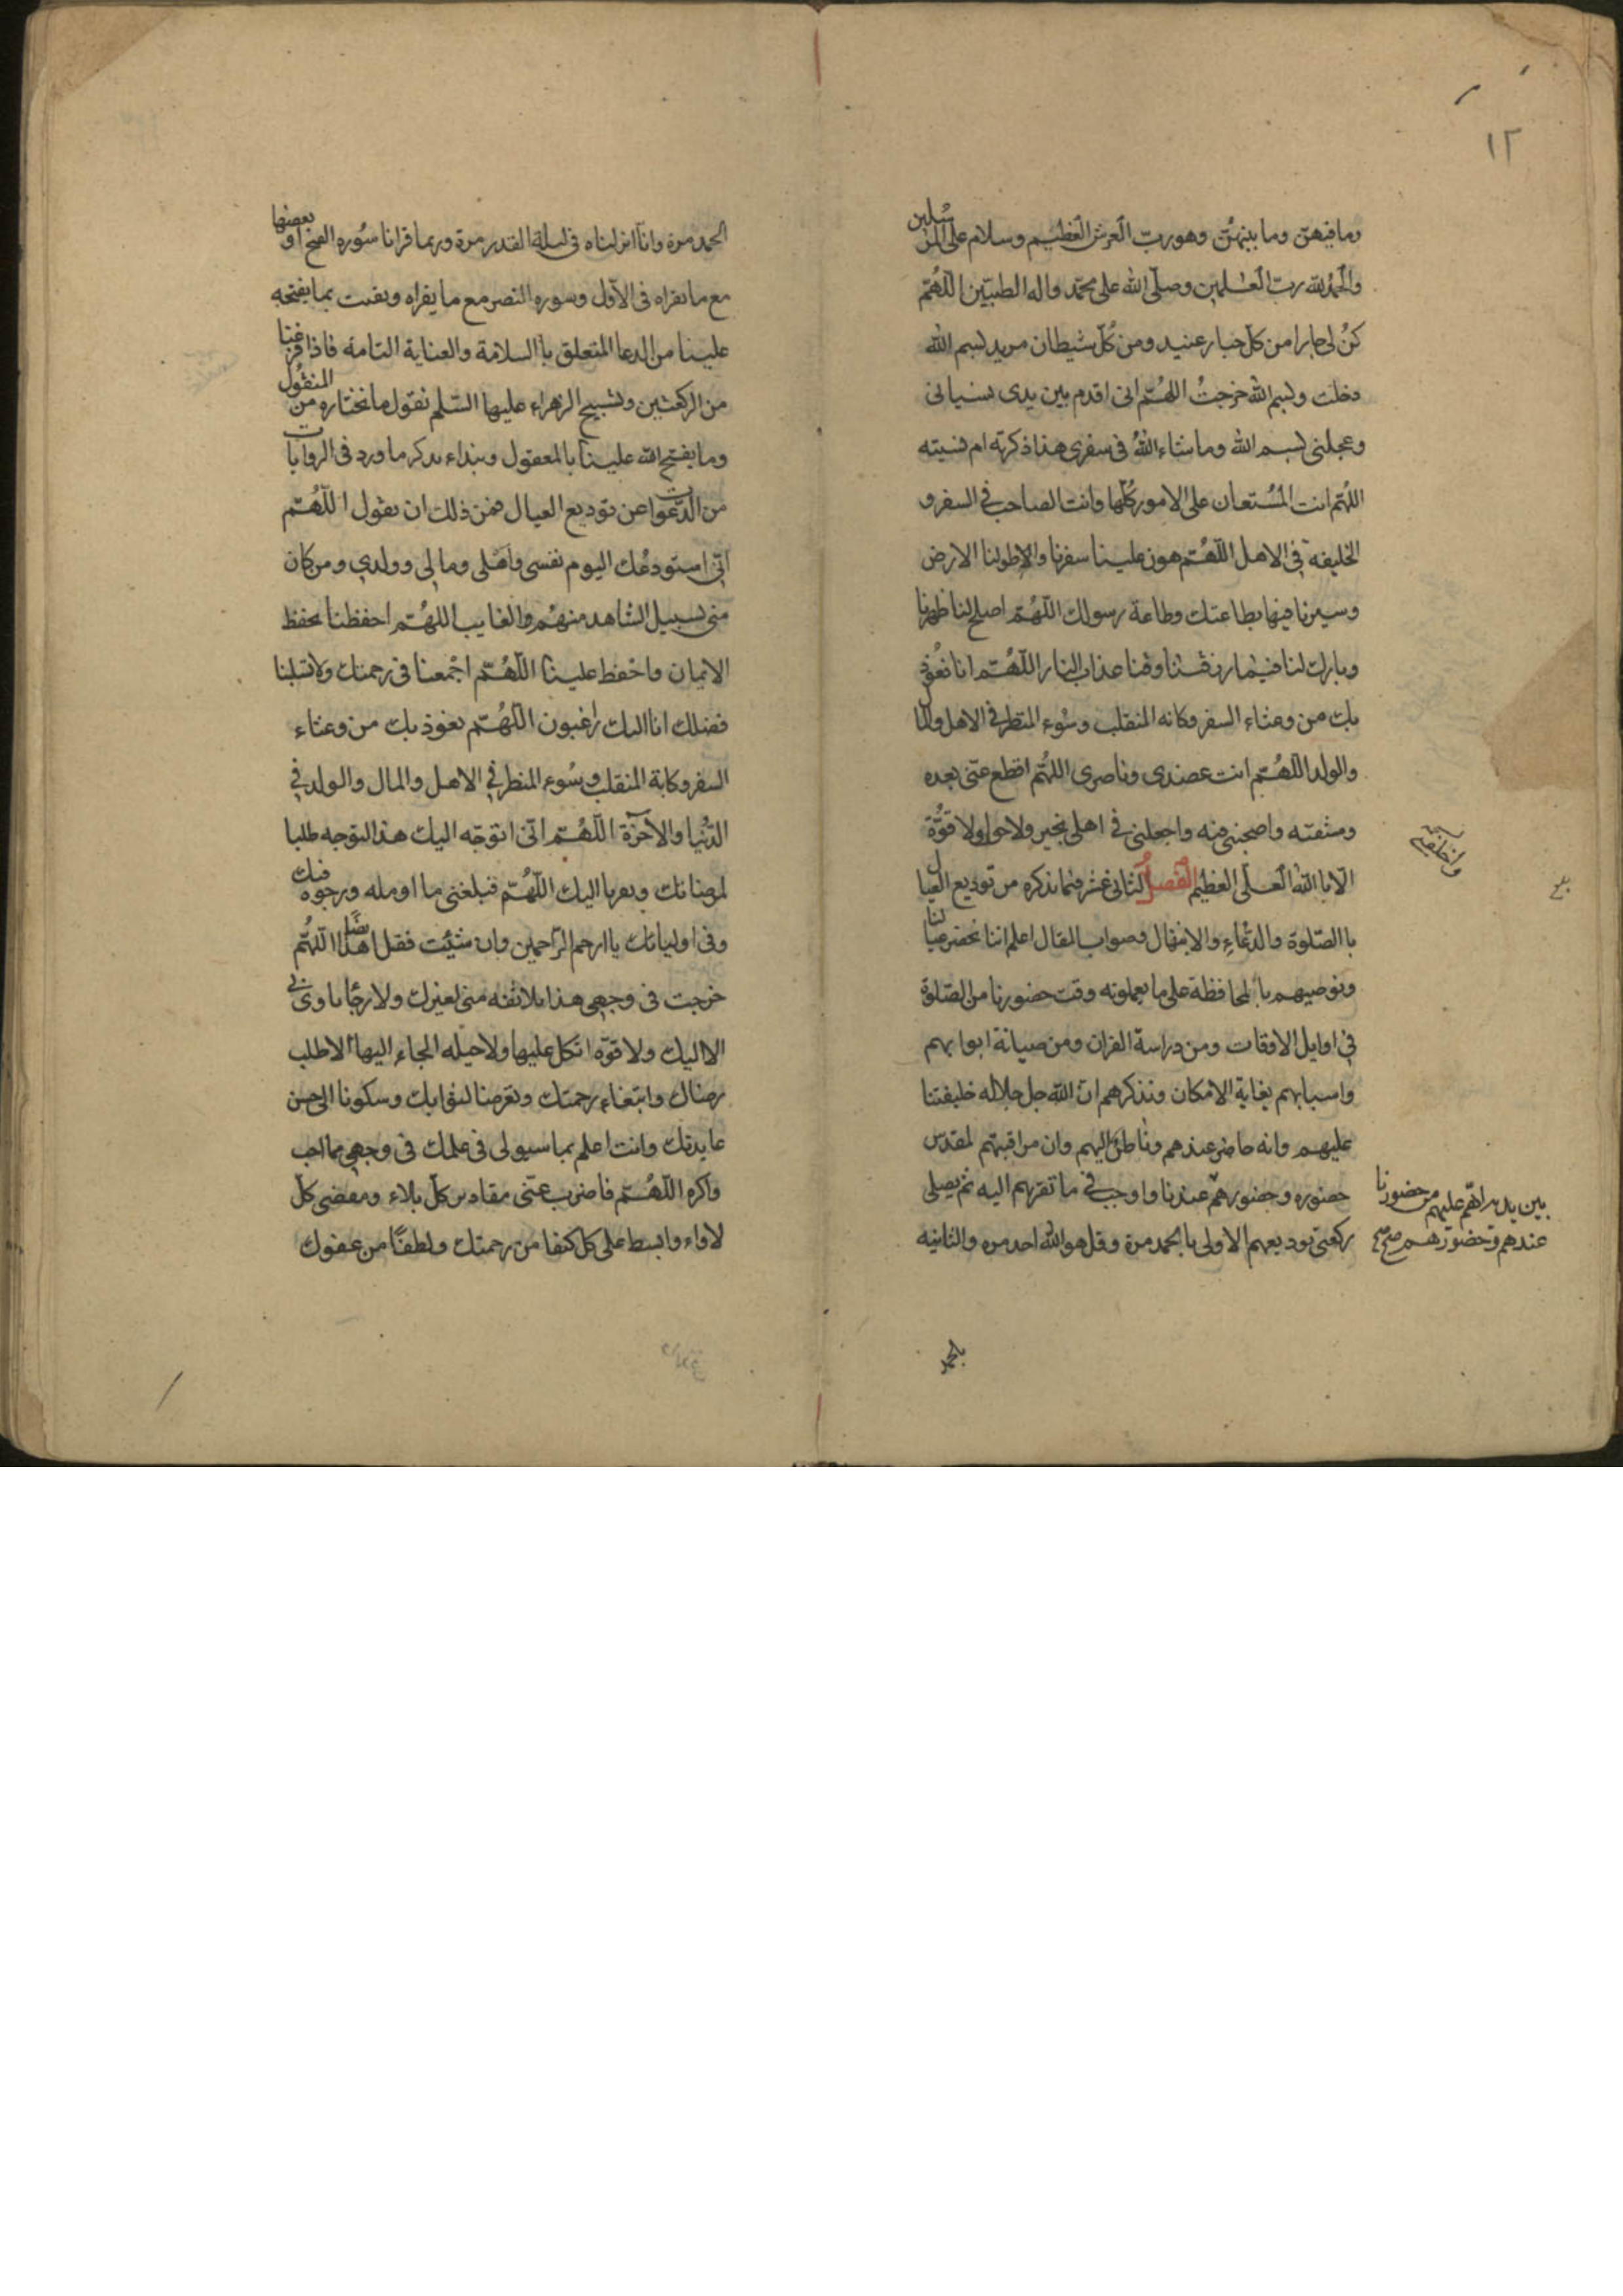 ١٢
وما فيهن وما بينهن وهو رب العرش العظيم وسلام على المرسلين
والحمد لله رب العلمين وصلى الله على محمد واله الطيبين اللهم
كن لى جارا من كل جبار عنيد ومن كل شيطان مريد بسم الله
دخلت وبسم الله خرجت اللهم انى اقدم بين يدى نسيانى
وعجلتى بسم الله وما شاء الله فى سفرى هذا ذكرته ام نسيته
اللهم انت المستعان على الامور كلها وانت الصاحب في السفر و
الخليفة في الاهل اللهم هون علينا سفرنا واطو لنا الارض
وسيرنا فيها بطاعتك وطاعة رسولك اللهم اصلح لنا ظهرنا
وبارك لنا فيما رزقتنا وقنا عذاب النار اللهم انا نعوذ
بك من وعثاء السفر وكابه المنقلب وسوء المنظر في الاهل والمال
والولد اللهم انت عضدى وناصرى اللهم اقطع عنى بعده
ومشقته واصحبنى فيه واخلفنى في اهلى بخير ولا حول ولا قوة
الا باالله العلى العظيم الفصل الثانى عشر فيما نذكره من توديع العيال
باالصلوة والدعاء والابتهال وصواب المقال اعلم اننا نحضر عيالنا
ونوصيهم بالمحافظة على ما يعملونه وقت حضورنا من الصلوة
في اوايل الاوقات ومن دراسة القران ومن صيانة ابوابهم
واسبابهم بغاية الامكان ونذكرهم ان الله جل جلاله خليفتنا
عليهم وانه حاضر عندهم وناظر اليهم وان مراقبتهم لمقدس
حضوره وحضورهم عندنا واوجب في ما تقربهم اليه ثم يصلى
ركعتى توديعهم الاولى بالحمد مرة وقل هو الله احد مره والثانيه
بين يديه اهم عليهم من حضورنا
عندهم وحضورهم صح
بالحمد
الحمد مرة وانا انزلناه فى ليلة القدر مرة وربما قرانا سوره الفتح او بعضها
مع ما نقراه فى الاول وسوره النصر مع ما يقراه ونقنت بما يفتحه
علينا من الدعا المتعلق باالسلامة والعناية التامة فاذا فرغنا
من الركعتين وتسبيح الزهراء عليها السلم نقول ما نختاره من المنقول
وما يفتح الله علينا بالمعقول ونبداء بذكر ما ورد فى الروايات
من الدعوات عن توديع العيال فمن ذلك ان يقول اللهم
انى استودعك اليوم نفسى واهلى ومالى وولدي ومن كان
منى بسبيل الشاهد منهم والغايب اللهم احفظنا بحفظ
الايمان واحفظ علينا اللهم اجمعنا فى رحمتك ولا تسلبنا
فضلك انا اليك راغبون اللهم نعوذ بك من وعثاء
السفر وكابة المنقلب وسوء المنظر في الاهل والمال والولد في
الدنيا والاخرة اللهم انى اتوجه اليك هذا التوجه طلبا
لمرضاتك وتقربا اليك اللهم فبلغنى ما اومله وارجوه فيك
وفى اوليائك ياارحم الراحمين وان شئت فقل ايضا اللهم
خرجت فى وجهى هذا بلا ثقه منى لغيرك ولا رجا ياوى بى
الا اليك ولا قوة اتكل عليها ولا حيله الجاء اليها الا طلب
رضاك وابتغاء رحمتك وتعرضا لثوابك وسكونا الى حسن
عايدتك وانت اعلم بما سبق لى فى علمك فى وجهى مما احب
واكره اللهم فاضرب عنى مقادير كل بلاء ومقضى كل
لاواء وابسط على كل كنفا من رحمتك ولطفا من عفوك